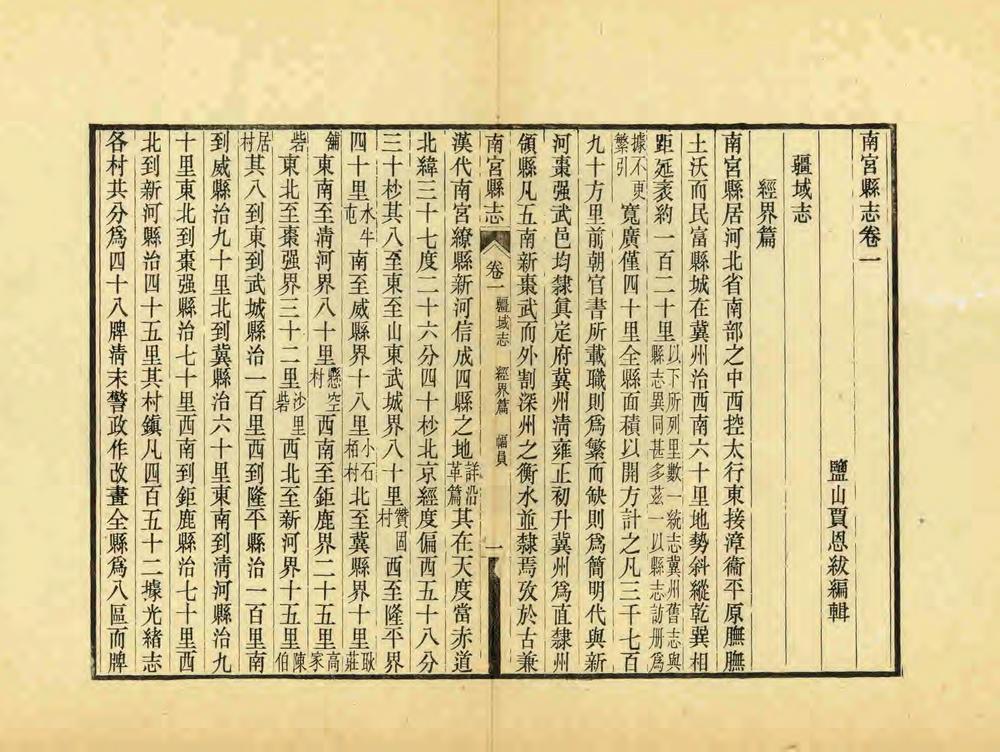 南宮縣志卷一
鹽山賈恩紱編輯
疆域志
經界篇
南宮縣居河北省南部之中西控太行東接漳衞平原膴膴
土沃而民富縣城在冀州治西南六十里地勢斜縱乾巽相
距延袤約一百二十里以下所列里數一統志冀州舊志與縣志異同甚多茲一以縣志訪册爲
據不更繁引寬廣僅四十里全縣面積以開方計之凡三千七百
九十方里前朝官書所載職則爲繁而缺則爲簡明代與新
河棗强武邑均隸眞定府冀州淸雍正初升冀州爲直隸州
領縣凡五南新棗武而外割深州之衡水並隸焉攷於古兼
南宮縣志 卷一 疆域志 經界篇 幅員 一
漢代南宮繚縣新河信成四縣之地詳沿革篇其在天度當赤道
北緯三十七度二十六分四十杪北京經度偏西五十八分
三十杪其八至東至山東武城界八十里贊固村西至隆平界
四十里水牛屯南至威縣界十八里小石栢村北至冀縣界十里耿莊
舖東南至淸河界八十里懸空村西南至鉅鹿界二十五里高家
砦東北至棗强界三十二里沙里砦西北至新河界十五里陳伯
居村其八到東到武城縣治一百里西到隆平縣治一百里南
到威縣治九十里北到冀縣治六十里東南到淸河縣治九
十里東北到棗强縣治七十里西南到鉅鹿縣治七十里西
北到新河縣治四十五里其村鎭凡四百五十二據光緒志
各村共分爲四十八牌淸末警政作改畫全縣爲八區而牌